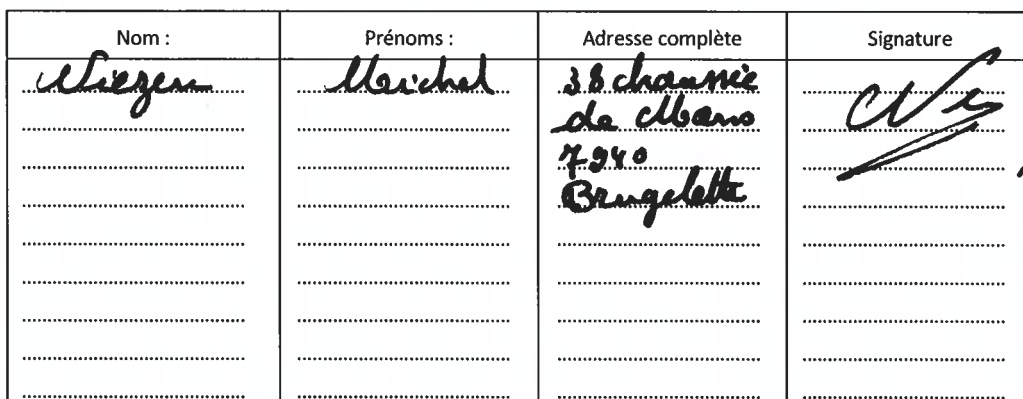 Nom :
Prénoms :
Adresse complète
Signature
Michel
38 chaussée
de Mons
7940
Brugelette